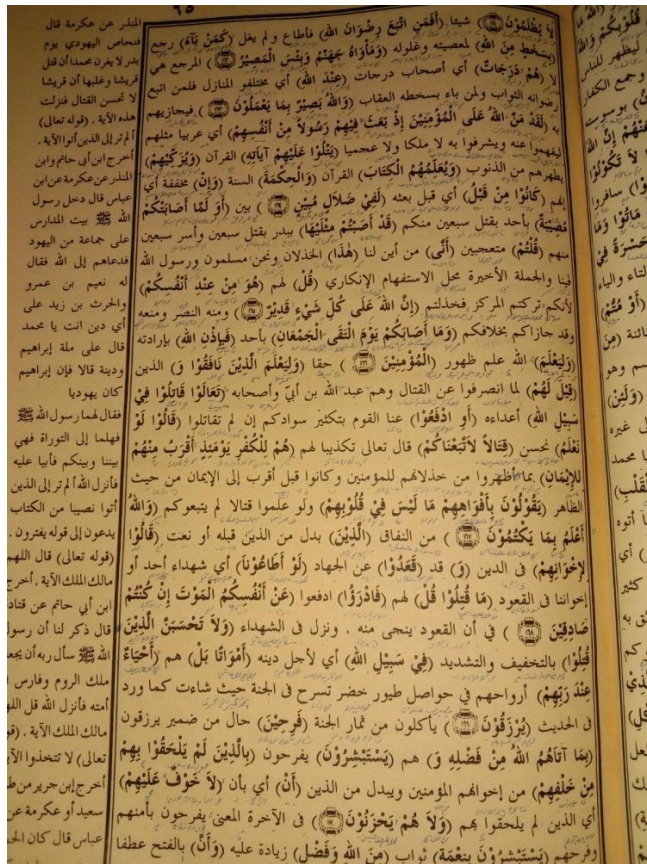 ٦٥
لاَ يُظْلَمُوْنَ) شيئا (أَفَمَنِ اتَّبَعَ رِضْوَانَ اللهِ) فأطاع ولم يغل (كَمَنْ بَآءَ) رجع
(بِسَخَطٍ مِنَ اللهِ) لمعصيته وغلوله (وَمَأْوَاهُ جَهَنَّمُ وَبِئْسَ الْمَصِيْرُ) المرجع هي
لا (هُمْ دَرَجَاتٌ) أي أصحاب درجات (عِنْدَ اللهِ) أي مختلفو المنازل فلمن اتبع
رضوانه الثواب ولمن باء بسخطه العقاب (وَاللهُ بَصِيْرٌ بِمَا يَعْمَلُوْنَ) فيجازيهم
به (لَقَدْ مَنَّ اللهُ عَلَى الْمُؤْمِنِيْنَ إِذْ بَعَثَ فِيْهِمْ رَسُوْلاً مِنْ أَنْفُسِهِمْ) أي عربيا مثلهم
ليفهموا عنه ويشرفوا به لا ملكا ولا عجميا (يَتْلُوْا عَلَيْهِمْ آيَاتِهِ) القرآن (وَيُزَكِّيْهِمْ)
يطهرهم من الذنوب (وَيُعَلِّمُهُمُ الْكِتَابَ) القرآن (وَالْحِكْمَةَ) السنة (وَإِنْ) مخففة أي
إنهم (كَانُوْا مِنْ قَبْلُ) أي قبل بعثه (لَفِيْ ضَلاَلٍ مُبِيْنٍ) بين (أَوَ لَمَّا أَصَابَتْكُمْ
مُصِيْبَةٌ) بأحد بقتل سبعين منكم (قَدْ أَصَبْتُمْ مِثْلَيْهَا) ببدر بقتل سبعين وأسر سبعين
منهم (قُلْتُمْ) متعجبين (أَنَّى) من أين لنا (هٰذَا) الخذلان ونحن مسلمون ورسول الله
فينا والجملة الأخيرة محل الاستفهام الإنكاري (قُلْ) لهم (هُوَ مِنْ عِنْدِ أَنْفُسِكُمْ)
لأنكم تركتم المركز فخذلتم (إِنَّ اللهَ عَلَى كُلِّ شَيْءٍ قَدِيْرٌ) ومنه النصر ومنعه
وقد جازاكم بخلافكم (وَمَا أَصَابَكُمْ يَوْمَ الْتَقَى الْجَمْعَانِ) بأحد (فَبِإِذْنِ اللهِ) بإرادته
(وَلِيَعْلَمَ) الله علم ظهور (الْمُؤْمِنِيْنَ) حقا (وَلِيَعْلَمَ الَّذِيْنَ نَافَقُوْا وَ) الذين
(قِيْلَ لَهُمْ) لما انصرفوا عن القتال وهم عبد الله بن أبيّ وأصحابه (تَعَالَوْا قَاتِلُوْا فِيْ
سَبِيْلِ اللهِ) أعداءه (أَوِ ادْفَعُوْا) عنا القوم بتكثير سوادكم إن لم تقاتلوا (قَالُوْا لَوْ
نَعْلَمُ) نحسن (قِتَالاً لاَتَّبَعْنَاكُمْ) قال تعالى تكذيبا لهم (هُمْ لِلْكُفْرِ يَوْمَئِذٍ أَقْرَبُ مِنْهُمْ
لِلإِيْمَانِ) بما أظهروا من خذلانهم للمؤمنين وكانوا قبل أقرب إلى الإيمان من حيث
الظاهر (يَقُوْلُوْنَ بِأَفْوَاهِهِمْ مَا لَيْسَ فِيْ قُلُوْبِهِمْ) ولو علموا قتالا لم يتبعوكم (وَاللهُ
أَعْلَمُ بِمَا يَكْتُمُوْنَ) من النفاق (الَّذِيْنَ) بدل من الذين قبله أو نعت (قَالُوْا
لِإِخْوَانِهِمْ) في الدين (وَ) قد (قَعَدُوْا) عن الجهاد (لَوْ أَطَاعُوْنَا) أي شهداء أحد أو
إخواننا في القعود (مَا قُتِلُوْا قُلْ) لهم (فَادْرَؤُا) ادفعوا (عَنْ أَنْفُسِكُمُ الْمَوْتَ إِنْ كُنْتُمْ
صَادِقِيْنَ) في أن القعود ينجى منه . ونزل في الشهداء (وَلاَ تَحْسَبَنَّ الَّذِيْنَ
قُتِلُوْا) بالتخفيف والتشديد (فِيْ سَبِيْلِ اللهِ) أي لأجل دينه (أَمْوَاتًا بَلْ) هم (أَحْيَاءٌ
عِنْدَ رَبِّهِمْ) أرواحهم في حواصل طيور خضر تسرح في الجنة حيث شاءت كما ورد
في الحديث (يُرْزَقُوْنَ) يأكلون من ثمار الجنة (فَرِحِيْنَ) حال من ضمير يرزقون
(بِمَا آتَاهُمُ اللهُ مِنْ فَضْلِهِ وَ) هم (يَسْتَبْشِرُوْنَ) يفرحون (بِالَّذِيْنَ لَمْ يَلْحَقُوْا بِهِمْ
مِنْ خَلْفِهِمْ) من إخوانهم المؤمنين ويبدل من الذين (أَنْ) أي بأن (لاَ خَوْفٌ عَلَيْهِمْ)
أي الذين لم يلحقوا بهم (وَلاَ هُمْ يَحْزَنُوْنَ) في الآخرة المعنى يفرحون بأمنهم
وفرحهم (يَسْتَبْشِرُوْنَ بِنِعْمَةٍ) ثواب (مِنَ اللهِ وَفَضْلٍ) زيادة عليه (وَأَنَّ) بالفتح عطفا
المنذر عن عكرمة قال
فنحاص اليهودي يوم
بدر لا يغرن محمدا أن قتل
قريشا وغلبها أن قريشا
لا تحسن القتال فنزلت
هذه الآية . (قوله تعالى)
ألم تر إلى الذين أتوا الآية .
أخرج ابن أبي حاتم وابن
المنذر عن عكرمة عن ابن
عباس قال دخل رسول
الله ﷺ بيت المدارس
على جماعة من اليهود
فدعاهم إلى الله فقال
له نعيم بن عمرو
والحرث بن زيد على
أي دين انت يا محمد
قال على ملة إبراهيم
ودينة قالا فإن إبراهيم
كان يهوديا
فقال لهما رسول الله ﷺ
فهلما إلى التوراة فهي
بيننا وبينكم فأبيا عليه
فأنزل الله ألم تر إلى الذين
أتوا نصيبا من الكتاب
يدعون إلى قوله يفترون .
(قوله تعالى) قال اللهم
مالك الملك الآية . أخرج
ابن أبي حاتم عن قتادة
قال ذكر لنا أن رسول
الله ﷺ سأل ربه أن يجعل
ملك الروم وفارس
أمته فأنزل الله قل اللهم
مالك الملك الآية .
تعالى) لا تتخذوا
أخرج إبن جرير من
سعيد أو عكرمة عن
عباس قال كان